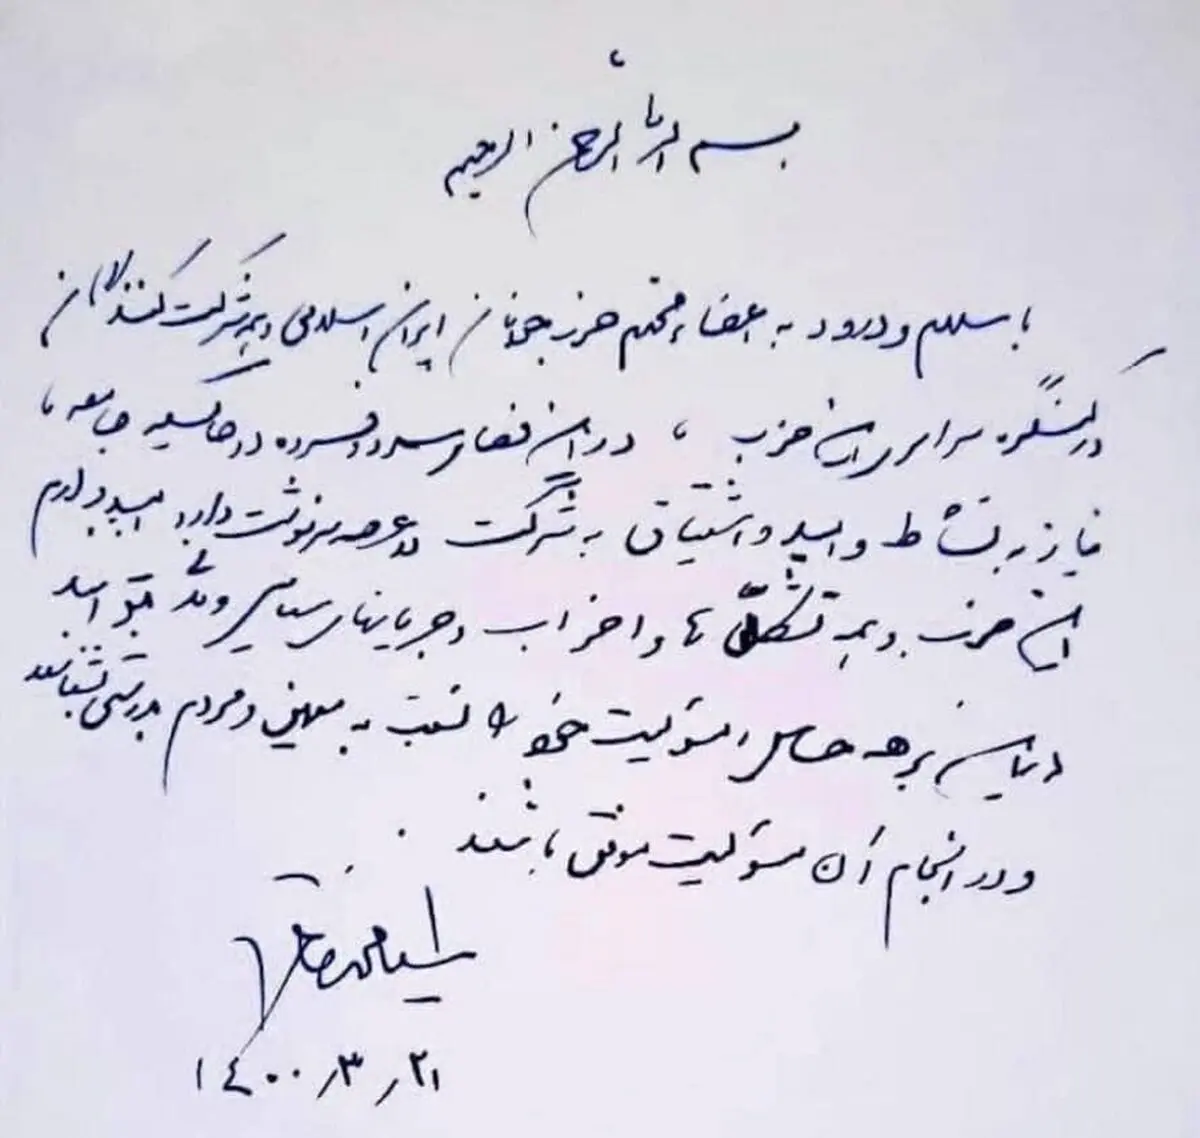 بسم الله الرحمن الرحیم
با سلام و درود به اعضاء محترم حزب جوانان ایران اسلامی و همه شرکت کنندگان
در کنگره سراسری این حزب ، در این فضای سرد و افسرده در حالیکه جامعه ما
نیاز به نشاط و امید و اشتیاق به شرکت در عرصه سرنوشت دارد امیدوارم
این حزب و همه تشکل ها و احزاب و جریانهای سیاسی و مدنی بتوانند
در این برهه حساس مسئولیت خود را نسبت به میهن و مردم بدرستی بشناسند
و در انجام آن مسئولیت موفق باشند .
سید محمد خاتمی
۱۴۰۰٫۳٫۲۱